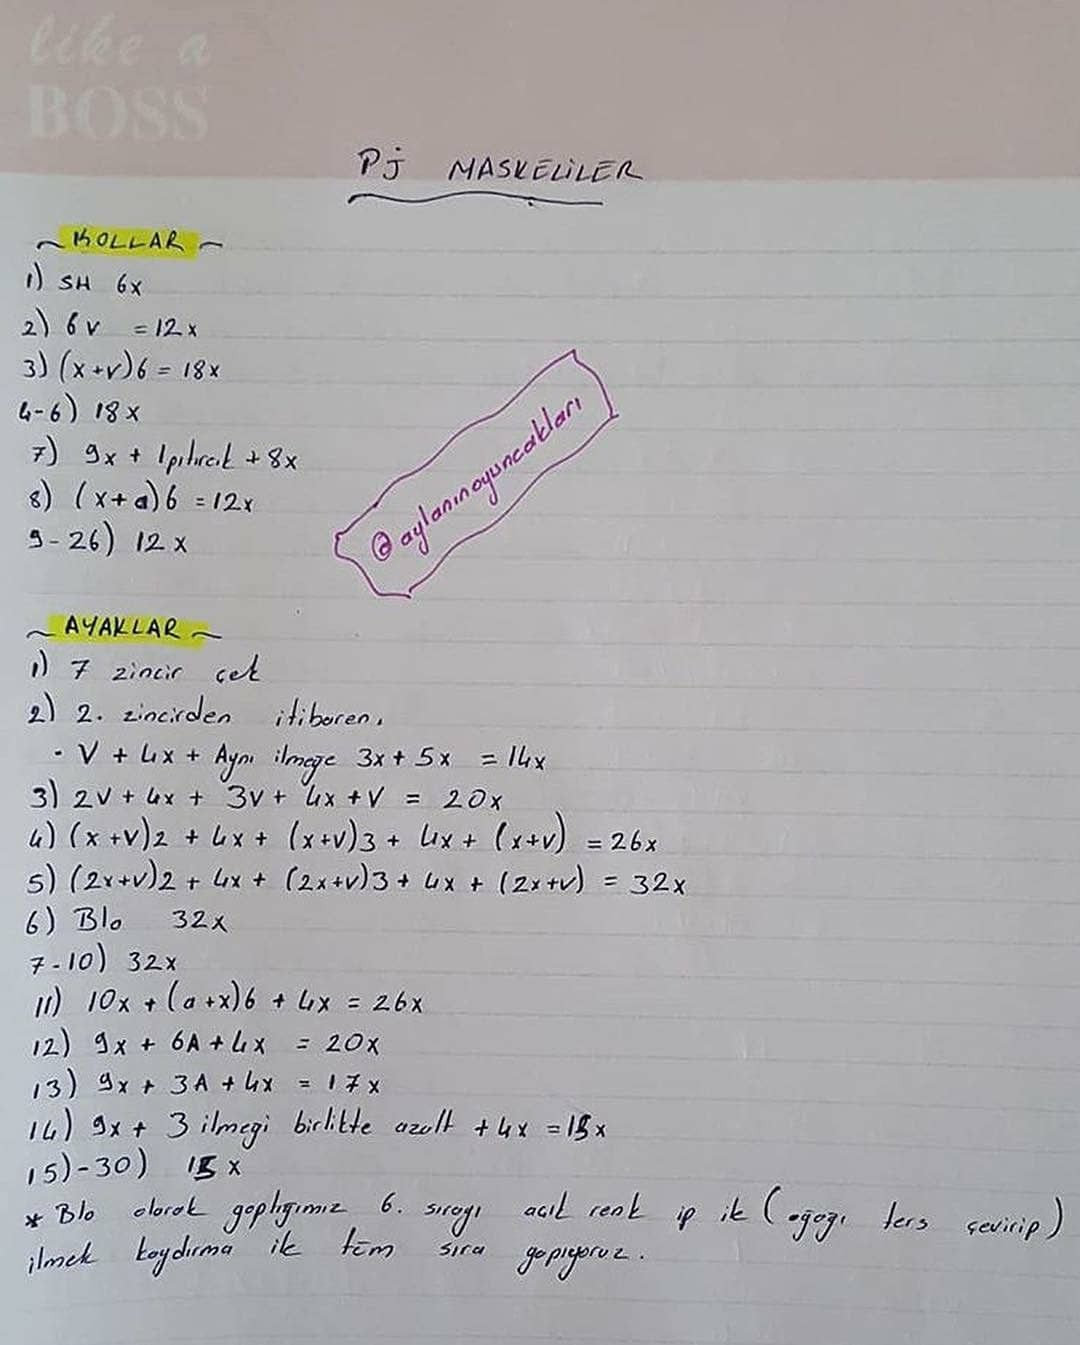 like a
BOSS
Pj MASKELİLER
~ KOLLAR ~
1) SH 6x
2) 6v = 12x
3) (x+v)6 = 18x
4-6) 18x
7) 9x + 1pıtırcık + 8x
8) (x+a)6 = 12x
9-26) 12x
@aylanınoyuncakları
~ AYAKLAR ~
1) 7 zincir çek
2) 2. zincirden itibaren.
- V + 4x + Aynı ilmeğe 3x + 5x = 14x
3) 2V + 4x + 3V + 4x + V = 20x
4) (x+V)2 + 4x + (x+V)3 + 4x + (x+v) = 26x
5) (2x+V)2 + 4x + (2x+v)3 + 4x + (2x+v) = 32x
6) Blo 32x
7-10) 32x
11) 10x + (a+x)6 + 4x = 26x
12) 9x + 6A + 4x = 20x
13) 9x + 3A + 4x = 17x
14) 9x + 3 ilmeği birlikte azalt + 4x = 15x
15)-30) 15x
* Blo olarak yaptığımız 6. sırayı açık renk ip ik (ayağı ters çevirip)
ilmek kaydırma ile tüm sıra yapıyoruz.